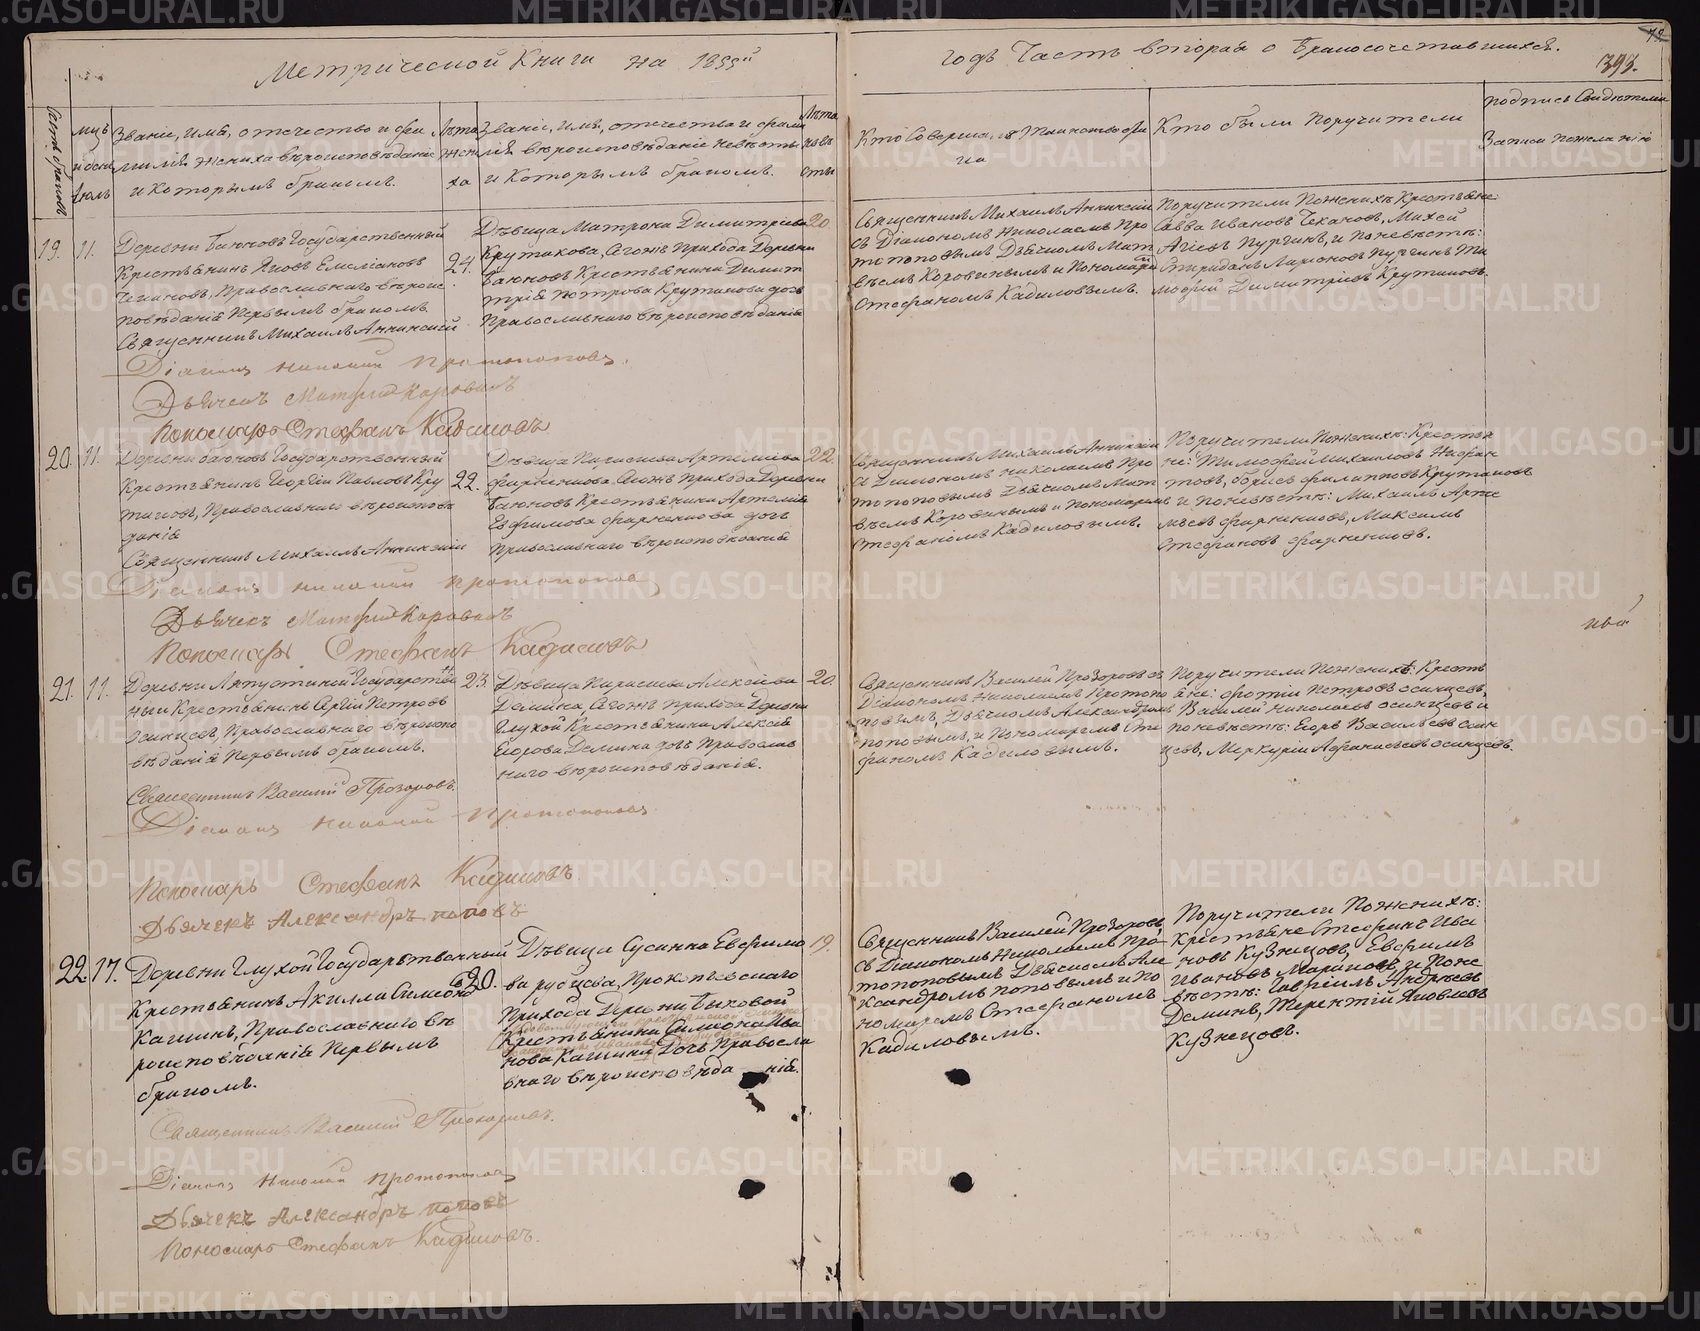 Метрической Книги на 1855й
годъ Часть вторая о бракосочетавшихся.
393.
Счетъ браковъ
Мцъ и день
Званіе, имя, отечество и фамилія жениха вѣроисповѣданіе и которымъ бракомъ.
Лѣта жениха
Званіе, имя, отечество и фамилія вѣроисповѣданіе невѣсты и которымъ бракомъ.
Лѣта невѣсты
Кто совершалъ таинство
Кто были поручители
подпись свидѣтелей записи по желанію
19. 11.
Деревни Баюновъ Государственный
Крестьянинъ Яковъ Емеліановъ
Чекановъ, Православнаго вѣроис
повѣданія первымъ бракомъ.
Священникъ Михаилъ Аннинскій
Діаконъ Николай Протопоповъ.
Дьячекъ Матфій Коровинъ
Пономарь Стефанъ Кадиловъ
24.
Дѣвица Матрона Димитріева
Крутикова, сегожъ прихода Деревни
Баюновъ Крестьянина Димит
трія Петрова Крутикова дочь
Православнаго вѣроисповѣданія
20
Священникъ Михаилъ Аннинскій
съ Діакономъ Николаемъ Про
топоповымъ Дьячкомъ Мат
вѣемъ Коровинымъ и Пономаремъ
Стефаномъ Кадиловымъ.
Поручители по женихѣ Крестьяне
Савва Ивановъ Чекановъ, Михей
Пургинъ, и по невѣстѣ:
Спиридонъ Ларіоновъ Пургинъ Ти
мофей Димитріевъ Крутиковъ.
20. 11.
Деревни Баюновъ Государственный
Крестьянинъ Георгій Павловъ Кру
тиковъ, Православнаго вѣроисповѣ
данія
Священникъ Михаилъ Аннинскій
Діаконъ Николай Протопоповъ
Дьячекъ Матфій Коровинъ
Пономарь Стефанъ Кадиловъ
22.
Дѣвица Параскева Артеміева
Фарненкова, сегожъ прихода Деревни
Баюновъ Крестьянина Артемія
Евфимова Фарненкова дочь
Православнаго вѣроисповѣданія
22
Священникъ Михаилъ Аннинскій
съ Діакономъ Николаемъ Про
топоповымъ Дьячкомъ Мат
вѣемъ Коровинымъ и Пономаремъ
Стефаномъ Кадиловымъ.
Поручители по женихѣ: Крестья
не: Тимофей Михаиловъ
Борисъ Филипповъ Крутиковъ
и по невѣстѣ: Михаилъ Арте
мьевъ Фарненковъ, Максимъ
Стефановъ Фарненковъ.
21. 11.
Деревни Лягустиной Государствен
ный Крестьянинъ Сергій Петровъ
Осинцевъ, Православнаго вѣроиспо
вѣданія первымъ бракомъ.
Священникъ Василій Прозоровъ.
Діаконъ Николай Протопоповъ
Пономарь Стефанъ Кадиловъ.
Дьячекъ Александръ Поповъ
23.
Дѣвица Параскева Алексіева
Демина, сегожъ прихода Деревни
Глухой Крестьянина Алексія
Егорова Демина дочь Православ
наго вѣроисповѣданія.
20.
Священникъ Василій Прозоровъ съ
Діакономъ Николаемъ Протопо
повымъ, Дьячкомъ Александромъ
Поповымъ, и Пономаремъ Сте
фаномъ Кадиловымъ.
Поручители по женихѣ: Кресть
яне: Фотій Петровъ Осинцевъ,
Василій Николаевъ Осинцевъ и
по невѣстѣ: Егоръ Васильевъ Осин
цевъ, Меркурій Афанасьевъ Осинцевъ.
22. 17.
Деревни Глухой Государственный
Крестьянинъ Акилла Симеоновъ
Кашинъ, Православнаго вѣ
роисповѣданія первымъ
бракомъ.
Священникъ Василій Прозоровъ.
Діаконъ Николай Протопоповъ
Дьячекъ Александръ Поповъ
Пономарь Стефанъ Кадиловъ.
20.
Дѣвица Сусанна Евфимо
ва Прокопьевскаго
прихода Деревни Быковой
Крестьянина Симеона Ива
нова Кашина Дочь Правосла
внаго вѣроисповѣданія.
19.
Священникъ Василій Прозоровъ,
съ Діакономъ Николаемъ Про
топоповымъ Дьячкомъ Але
ксандромъ Поповымъ и По
номаремъ Стефаномъ
Кадиловымъ.
Поручители по женихѣ:
Крестьяне Стефанъ Ива
новъ Кузнецовъ, Евфимъ
Ивановъ и по не
вѣстѣ: Гавріилъ Андреевъ
Деминъ, Терентій Яковлевъ
Кузнецовъ.
METRIKI.GASO-URAL.RU